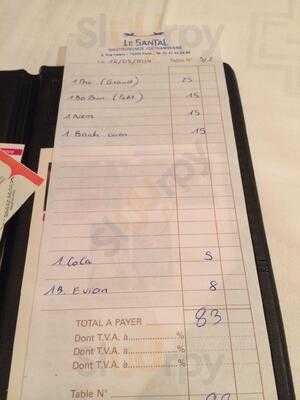 LE SANTAL
GASTRONOMIE VIETNAMIENNE
Table N°
1 Pho (Grand) 25
1 BoBun (Petit) 15
1 Nem 15
1 Banh cuon 15
1 Cola 5
1 B. Evian 8
TOTAL A PAYER 83
Dont T.V.A. à %
Dont T.V.A. à %
Dont T.V.A. à %
Table N°